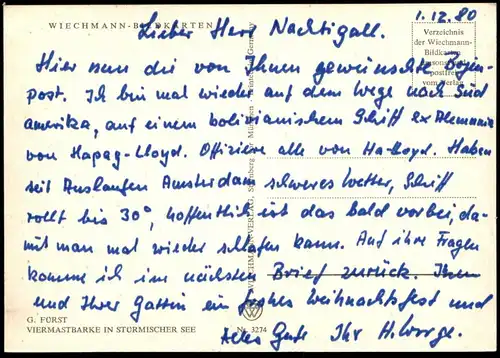 1.12.80
WIECHMANN-BILDKARTEN
Lieber Herr Nachtigall.
Verzeichnis
der Wiechmann-
Bildkarten
postfrei
vom Verlag
Hier nun die von Ihnen gewünschte
post. Ich bin mal wieder auf dem Wege nach Süd
amerika, auf einem bolivianischem Schiff ex Alemania
von Hapag-Lloyd. Offiziere alle von Ha-Lloyd. Haben
seit Auslaufen Amsterdam schweres Wetter, Schiff
rollt bis 30°, hoffentlich ist das bald vorbei, da-
mit man mal wieder schlafen kann. Auf ihre Fragen
komme ich im nächsten Brief zurück. Ihnen
und Ihrer Gattin ein frohes Weihnachtsfest und
Alles Gute Ihr H.
G. FORST
VIERMASTBARKE IN STÜRMISCHER SEE
Nr. 3274
WIECHMANN VERLAG, Starnberg München Germany